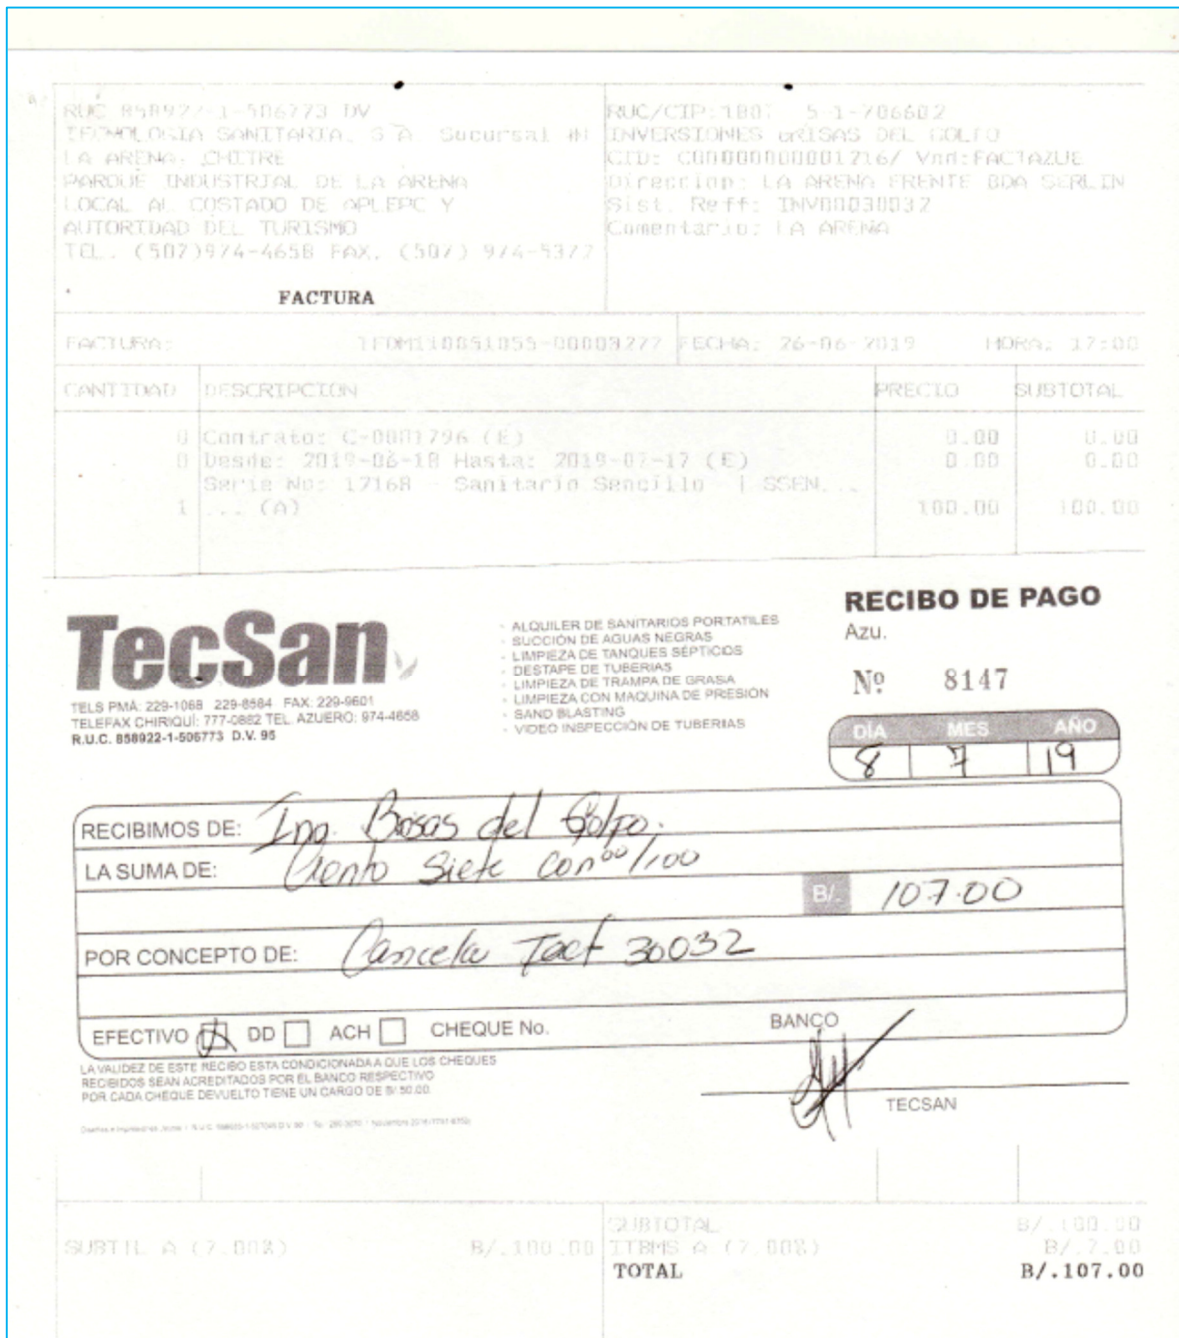 RUC 858922-1-506773 DV
TECNOLOGIA SANITARIA, S.A. Sucursal #1
LA ARENA, CHITRE
PARQUE INDUSTRIAL DE LA ARENA
LOCAL AL COSTADO DE APLEPC Y
AUTORIDAD DEL TURISMO
TEL. (507)974-4658 FAX. (507) 974-5377
RUC/CIP: 5-1-706602
INVERSIONES BRISAS DEL GOLFO
CID: Vnd:FACTAZUE
Direccion: LA ARENA FRENTE BDA
Sist. Reff: INV00030032
Comentario: LA ARENA
FACTURA
FACTURA: FECHA: 26-06-2019 HORA: 17:00
CANTIDAD DESCRIPCION PRECIO SUBTOTAL
0 Contrato: C-0001796 (E) 0.00 0.00
0 Desde: 2019-06-18 Hasta: 2019-07-17 (E) 0.00 0.00
Serie No: 17168 - Sanitario Sencillo | SSEN...
1 ... (A) 100.00 100.00
TecSan
TELS PMÁ: 229-1068 229-8564 FAX: 229-9601
TELEFAX CHIRIQUÍ: 777-0882 TEL. AZUERO: 974-4658
R.U.C. 858922-1-506773 D.V. 95
- ALQUILER DE SANITARIOS PORTATILES
- SUCCIÓN DE AGUAS NEGRAS
- LIMPIEZA DE TANQUES SÉPTICOS
- DESTAPE DE TUBERIAS
- LIMPIEZA DE TRAMPA DE GRASA
- LIMPIEZA CON MAQUINA DE PRESIÓN
- SAND BLASTING
- VIDEO INSPECCIÓN DE TUBERIAS
RECIBO DE PAGO
Azu.
Nº 8147
DÍA MES AÑO
8 7 19
RECIBIMOS DE: Brisas del Golfo.
LA SUMA DE: Ciento Siete con 00/100
B/. 107.00
POR CONCEPTO DE: Cancela Fact 30032
EFECTIVO DD ACH CHEQUE No. BANCO
LA VALIDEZ DE ESTE RECIBO ESTA CONDICIONADA A QUE LOS CHEQUES
RECIBIDOS SEAN ACREDITADOS POR EL BANCO RESPECTIVO
POR CADA CHEQUE DEVUELTO TIENE UN CARGO DE B/ 50.00.
TECSAN
SUBTTL A (7.00%) B/.100.00
SUBTOTAL B/.100.00
ITBMS A (7.00%) B/.7.00
TOTAL B/.107.00